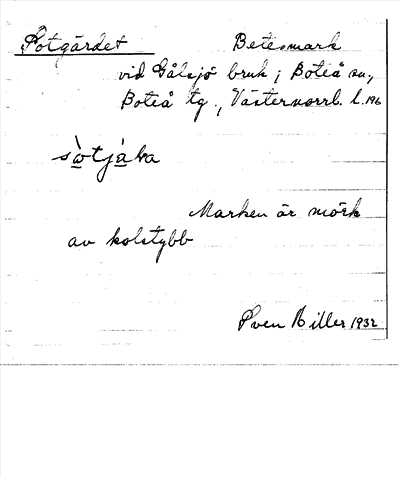 Sotgärdet Betesmark
vid Gålsjö bruk; Boteå sn,
Boteå tg., Västernorrl. l. 196
sòtjàka
Marken är mörk
av kolstybb
Sven Hiller 1932